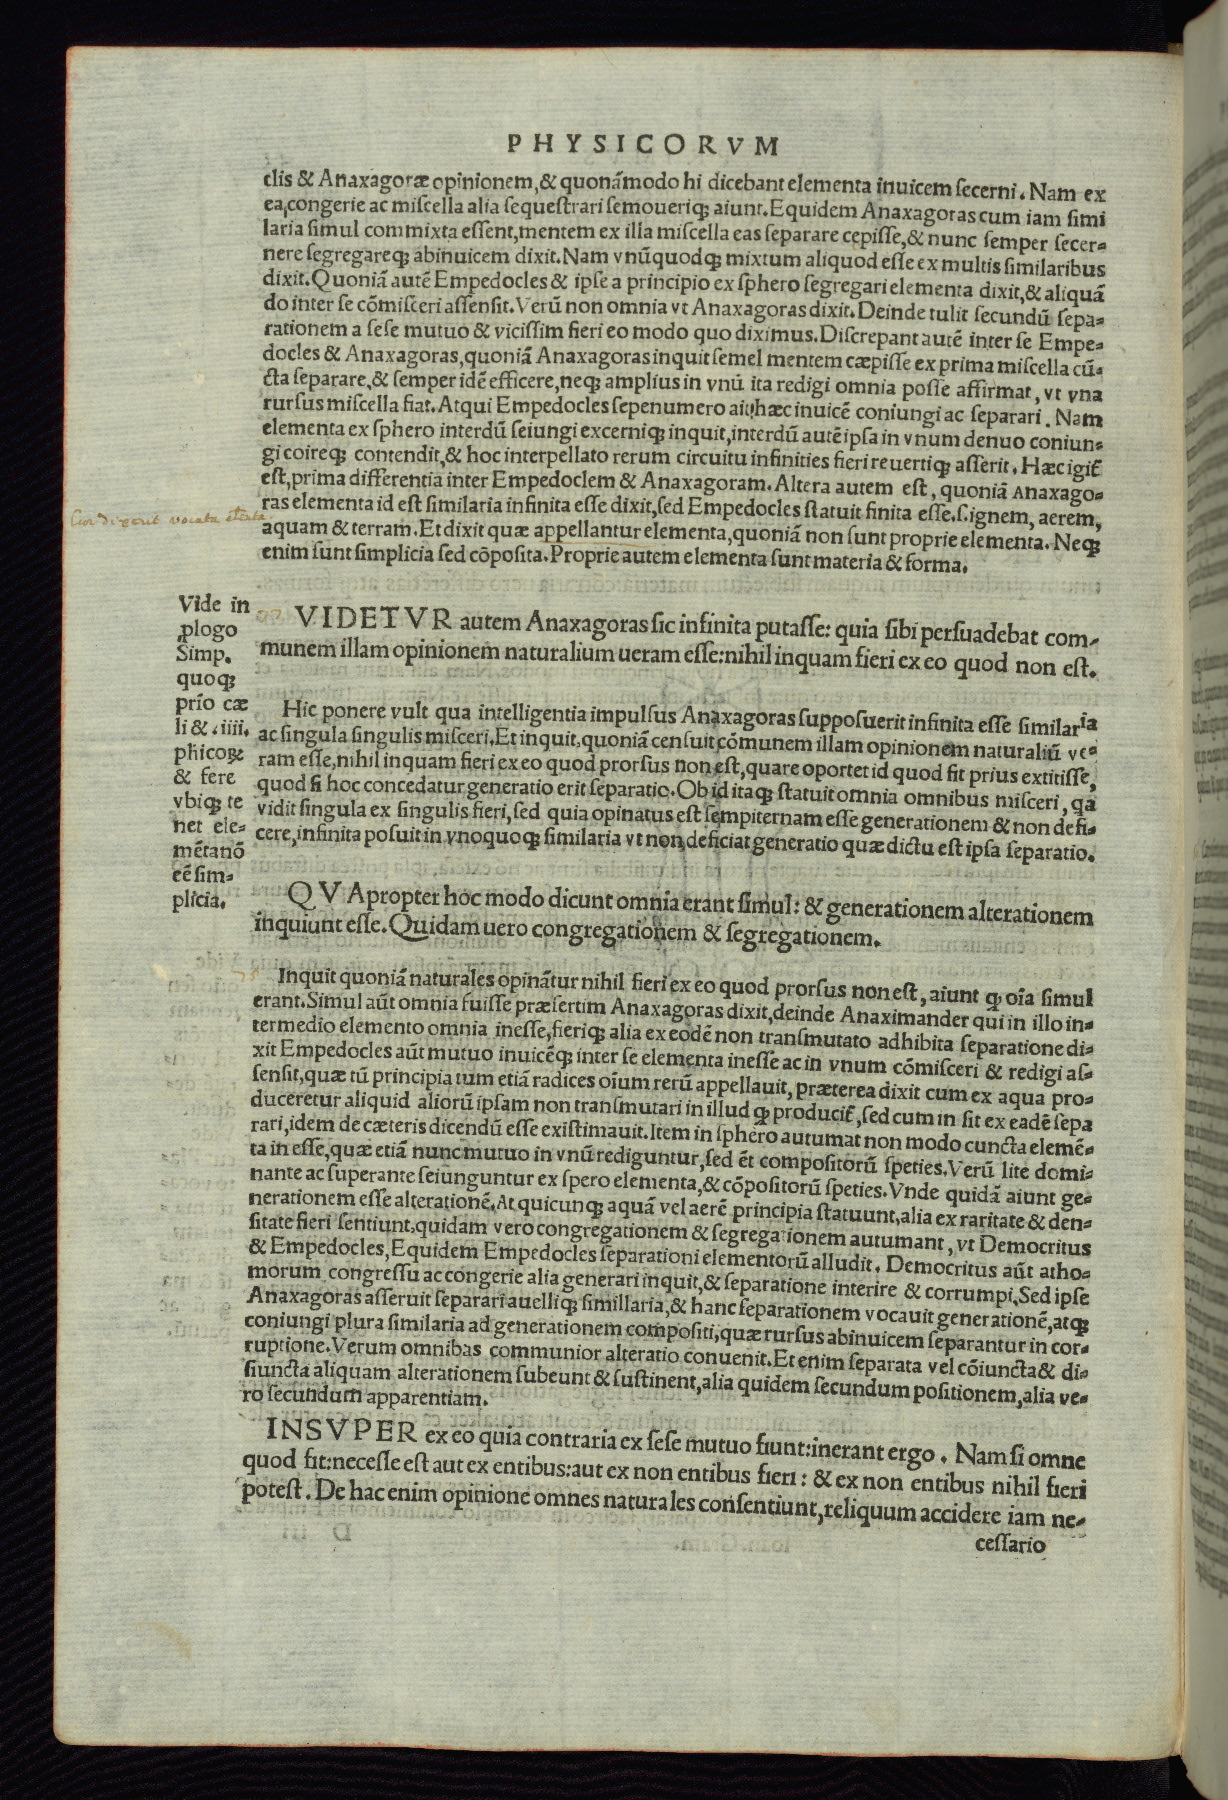 PHYSICORVM
clis & Anaxagoræ opinionem, & quonāmodo hi dicebant elementa inuicem secerni. Nam ex
ea, congerie ac miscella alia sequestrari semoueriq; aiunt. Equidem Anaxagoras cum iam simi
laria simul commixta essent, mentem ex illa miscella eas separare cępisse, & nunc semper secer-
nere segregareq; abinuicem dixit. Nam vnūquodq; mixtum aliquod esse ex multis similaribus
dixit. Quoniā autē Empedocles & ipse a principio ex sphero segregari elementa dixit, & aliquā
do inter se cōmisceri assensit. Verū non omnia vt Anaxagoras dixit. Deinde tulit secundū sepa-
rationem a sese mutuo & vicissim fieri eo modo quo diximus. Discrepant autē inter se Empe-
docles & Anaxagoras, quoniā Anaxagoras inquit semel mentem cæpisse ex prima miscella cū-
cta separare, & semper idē efficere, neq; amplius in vnū ita redigi omnia posse affirmat, vt vna
rursus miscella fiat. Atqui Empedocles sepenumero ait hæc inuicē coniungi ac separari. Nam
elementa ex sphero interdū seiungi excerniq; inquit, interdū autē ipsa in vnum denuo coniun-
gi coireq; contendit, & hoc interpellato rerum circuitu infinities fieri reuertiq; asserit. Hæc igit̄
est, prima differentia inter Empedoclem & Anaxagoram. Altera autem est, quoniā Anaxago-
ras elementa id est similaria infinita esse dixit, sed Empedocles statuit finita esse. s. ignem, aerem,
aquam & terram. Et dixit quæ appellantur elementa, quoniā non sunt proprie elementa. Neq;
enim sunt simplicia sed cōposita. Proprie autem elementa sunt materia & forma.
Vide in
plogo
Simp.
quoq;
prīo cæ
li & .iiii.
phīcoꝝ
& fere
vbiq; te
net ele-
mētanō
eē sim-
plicia.
VIDETVR autem Anaxagoras sic infinita putasse: quia sibi persuadebat com-
munem illam opinionem naturalium ueram esse: nihil inquam fieri ex eo quod non est.
Hic ponere vult qua intelligentia impulsus Anaxagoras supposuerit infinita esse similaria
ac singula singulis misceri. Et inquit, quoniā censuit cōmunem illam opinionem naturaliū ve-
ram esse, nihil inquam fieri ex eo quod prorsus non est, quare oportet id quod fit prius extitisse,
quod si hoc concedatur generatio erit separatio. Ob id itaq; statuit omnia omnibus misceri, qā
vidit singula ex singulis fieri, sed quia opinatus est sempiternam esse generationem & non defi-
cere, infinita posuit in vnoquoq; similaria vt non deficiat generatio quæ dictu est ipsa separatio.
QV Apropter hoc modo dicunt omnia erant simul: & generationem alterationem
inquiunt esse. Quidam uero congregationem & segregationem.
Inquit quoniā naturales opinātur nihil fieri ex eo quod prorsus non est, aiunt ꝙ oīa simul
erant. Simul aūt omnia fuisse præsertim Anaxagoras dixit, deinde Anaximander qui in illo in-
termedio elemento omnia inesse, fieriq; alia ex eodē non transmutato adhibita separatione di-
xit Empedocles aūt mutuo inuicēq; inter se elementa inesse ac in vnum cōmisceri & redigi as-
sensit, quæ tū principia tum etiā radices oīum rerū appellauit, præterea dixit cum ex aqua pro-
duceretur aliquid aliorū ipsam non transmutari in illud ꝙ producit̄, sed cum in sit ex eadē sepa
rari, idem de cæteris dicendū esse existimauit. Item in sphero autumat non modo cuncta elemē-
ta in esse, quæ etiā nunc mutuo in vnū rediguntur, sed ēt compositorū speties. Verū lite domi-
nante ac superante seiunguntur ex spero elementa, & cōpositorū speties. Vnde quidā aiunt ge-
nerationem esse alterationē. At quicunq; aquā vel aerē principia statuunt, alia ex raritate & den-
sitate fieri sentiunt, quidam vero congregationem & segregationem autumant, vt Democritus
& Empedocles, Equidem Empedocles separationi elementorū alludit. Democritus aūt atho-
morum congressu ac congerie alia generari inquit, & separatione interire & corrumpi. Sed ipse
Anaxagoras asseruit separari auelliq; simillaria, & hanc separationem vocauit generationē, atq;
coniungi plura similaria ad generationem compositi, quæ rursus abinuicem separantur in cor-
ruptione. Verum omnibas communior alteratio conuenit. Et enim separata vel cōiuncta & di-
siuncta aliquam alterationem subeunt & sustinent, alia quidem secundum positionem, alia ve-
ro secundum apparentiam.
INSVPER ex eo quia contraria ex sese mutuo fiunt: inerant ergo. Nam si omne
quod fit: necesse est aut ex entibus: aut ex non entibus fieri: & ex non entibus nihil fieri
potest. De hac enim opinione omnes naturales consentiunt, reliquum accidere iam ne-
cessario